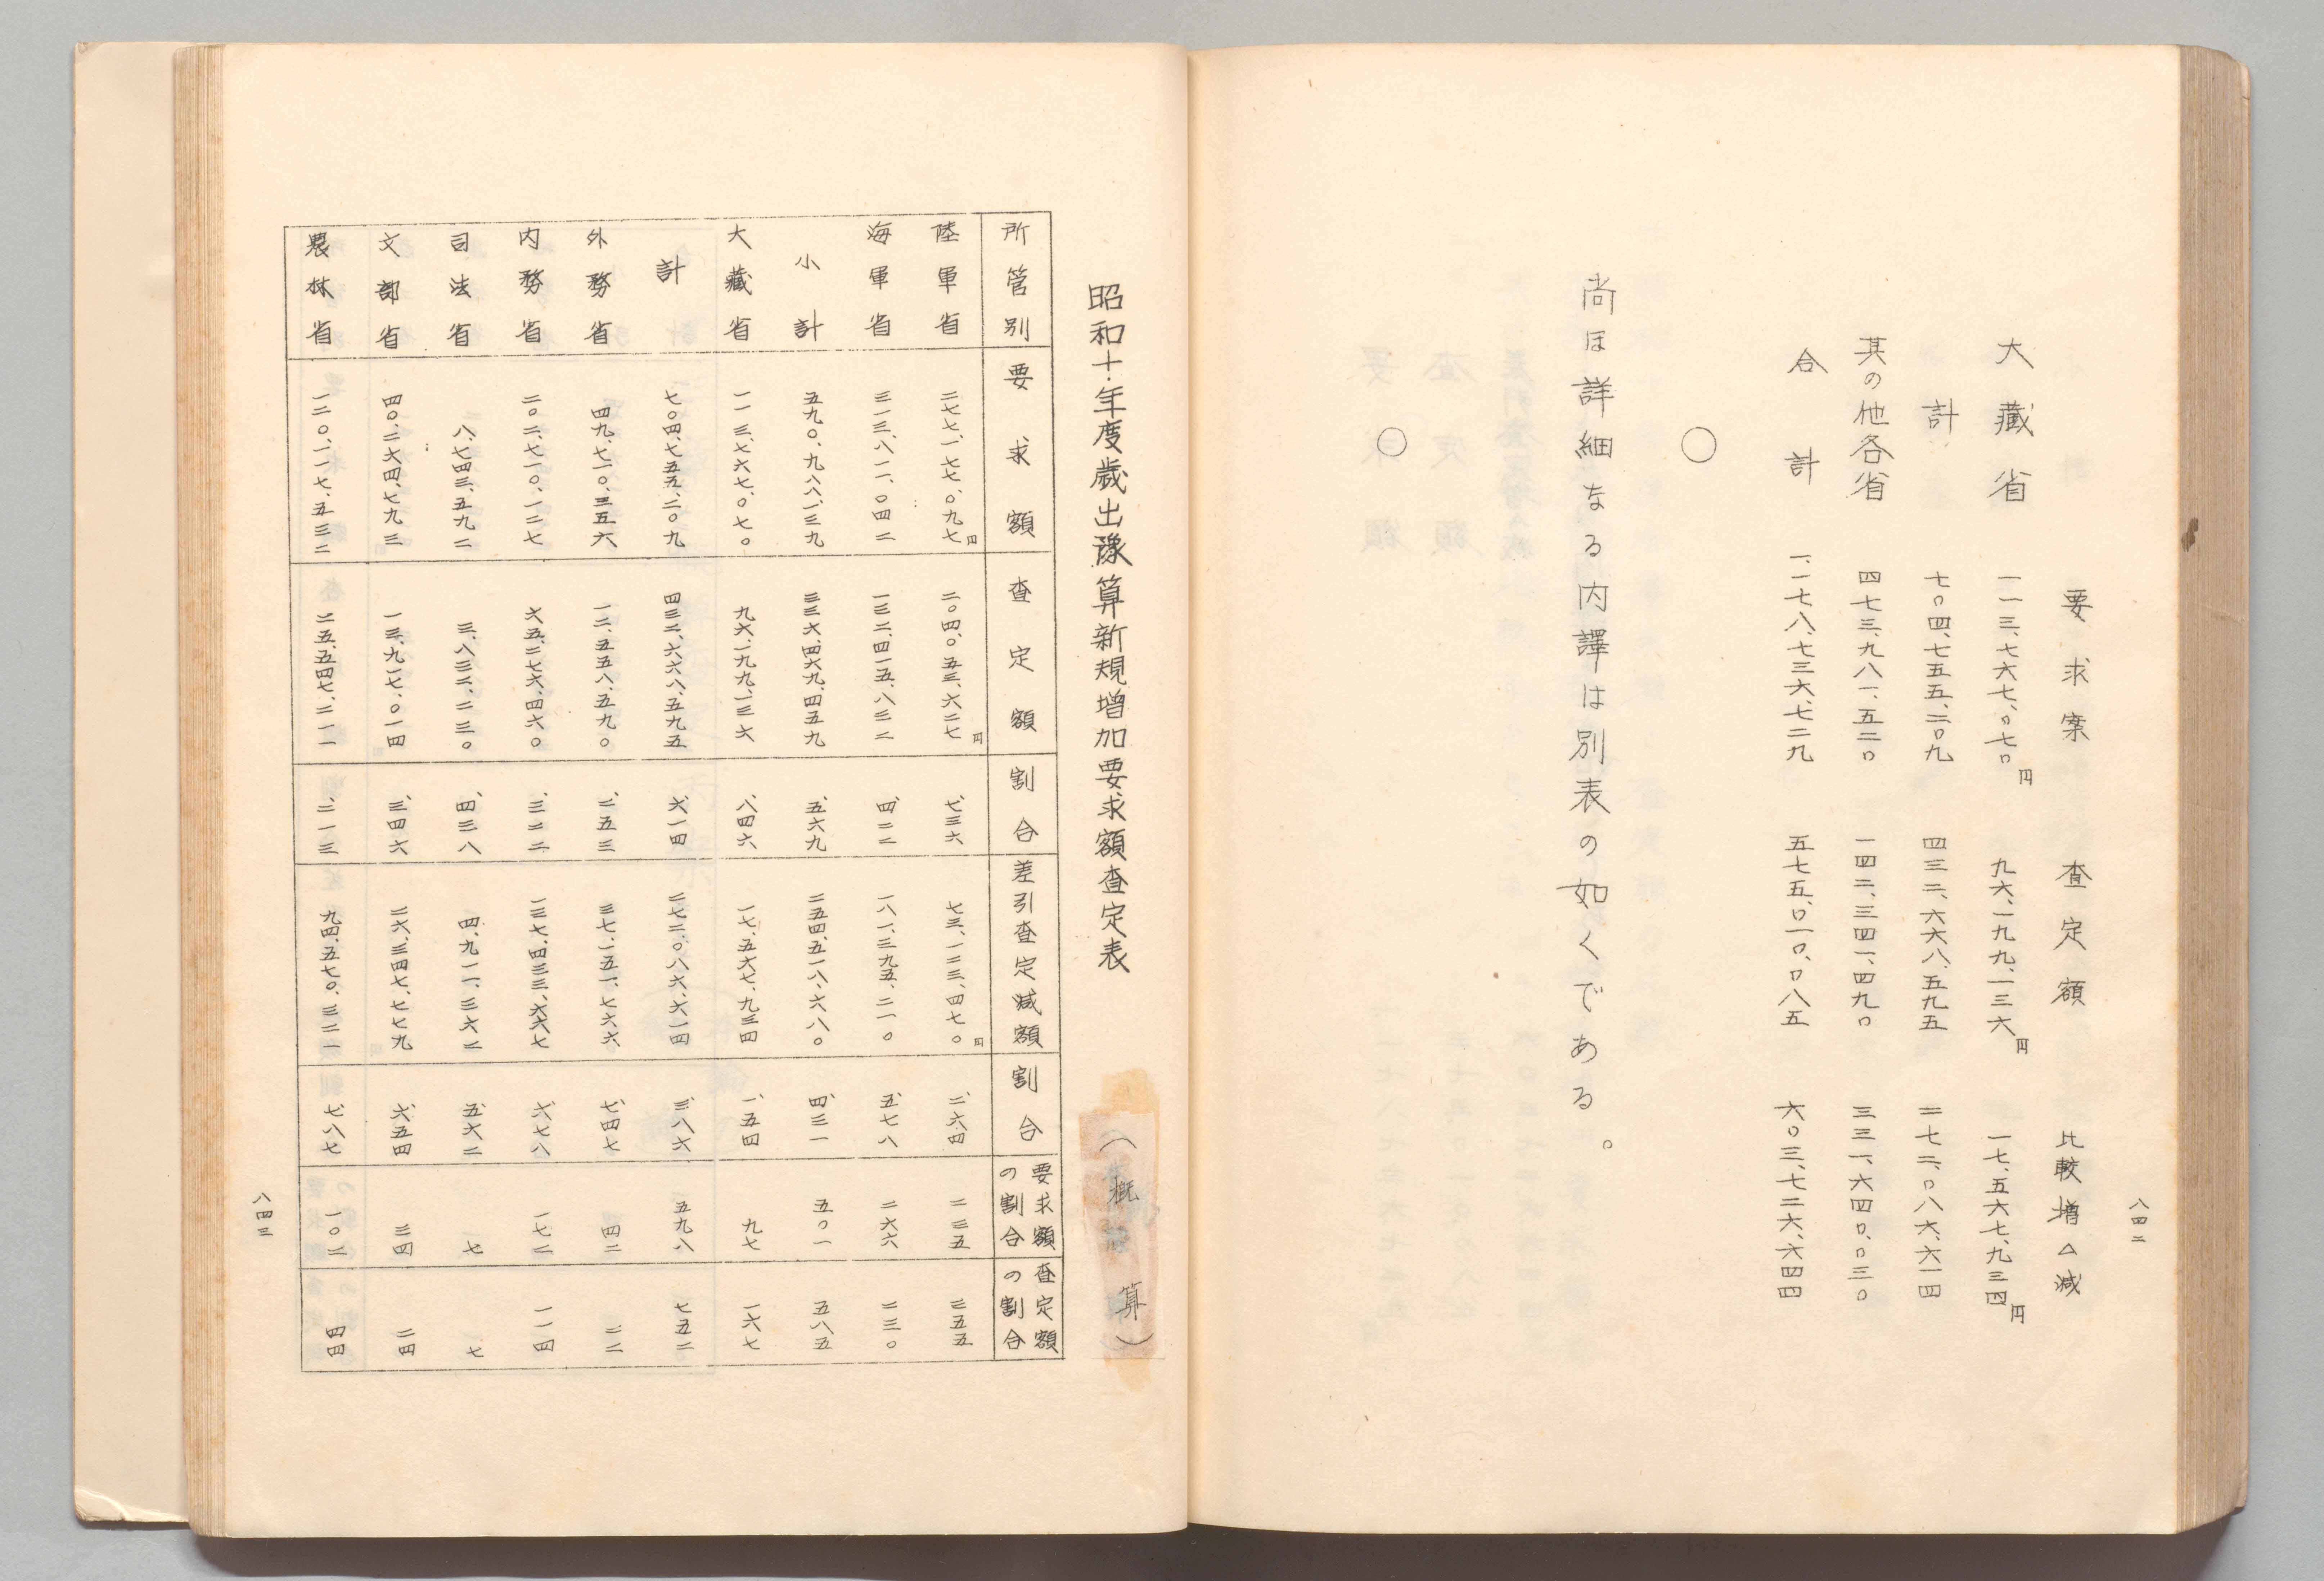 八四二
要求案 査定額 比較増△減
大藏省 一一三、七六七、〇七〇円 九六、一九九、一三六円 一七、五六七、九三四円
計 七〇四、七五五、二〇九 四三二、六六八、五九五 二七二、〇八六、六一四
其の他各省 四七三、九八一、五二〇 一四二、三四一、四九〇 三三一、六四〇、〇三〇
合計 一、一七八、七三六、七二九 五七五、〇一〇、〇八五 六〇三、七二六、六四四
○
尚ほ詳細なる内譯は別表の如くである。
○
昭和十年度歳出豫算新規増加要求額査定表 （概算）
所管別 要求額 査定額 割合 差引査定減額 割合 要求額の割合 査定額の割合
陸軍省 二七七、一七七、〇九七円 二〇四、〇五三、六二七円 、七三六 七三、一二三、四七〇円 、二六四 二三五 三五五
海軍省 三一三、八一一、〇四二 一三二、四一五、八三二 、四二二 一八一、三九五、二一〇 、五七八 二六六 二三〇
小計 五九〇、九八八、一三九 三三六、四六九、四五九 、五六九 二五四、五一八、六八〇 、四三一 五〇一 五八五
大藏省 一一三、七六七、〇七〇 九六、一九九、一三六 、八四六 一七、五六七、九三四 、一五四 九七 一六七
計 七〇四、七五五、二〇九 四三二、六六八、五九五 、六一四 二七二、〇八六、六一四 、三八六 五九八 七五二
外務省 四九、七一〇、三五六 一二、五五八、五九〇 、二五三 三七、一五一、七六六 、七四七 四二 二二
内務省 二〇二、七一〇、一二七 六五、二七六、四六〇 、三二二 一三七、四三三、六六七 、六七八 一七二 一一四
司法省 八、七四三、五九二 三、八三二、二三〇 、四三八 四、九一一、三六二 、五六二 七 七
文部省 四〇、二六四、七九三 一三、九一七、〇一四 、三四六 二六、三四七、七七九 、六五四 三四 二四
農林省 一二〇、一一七、五三二 二五、五四七、二一一 、二一三 九四、五七〇、三二一 、七八七 一〇二 四四
八四三